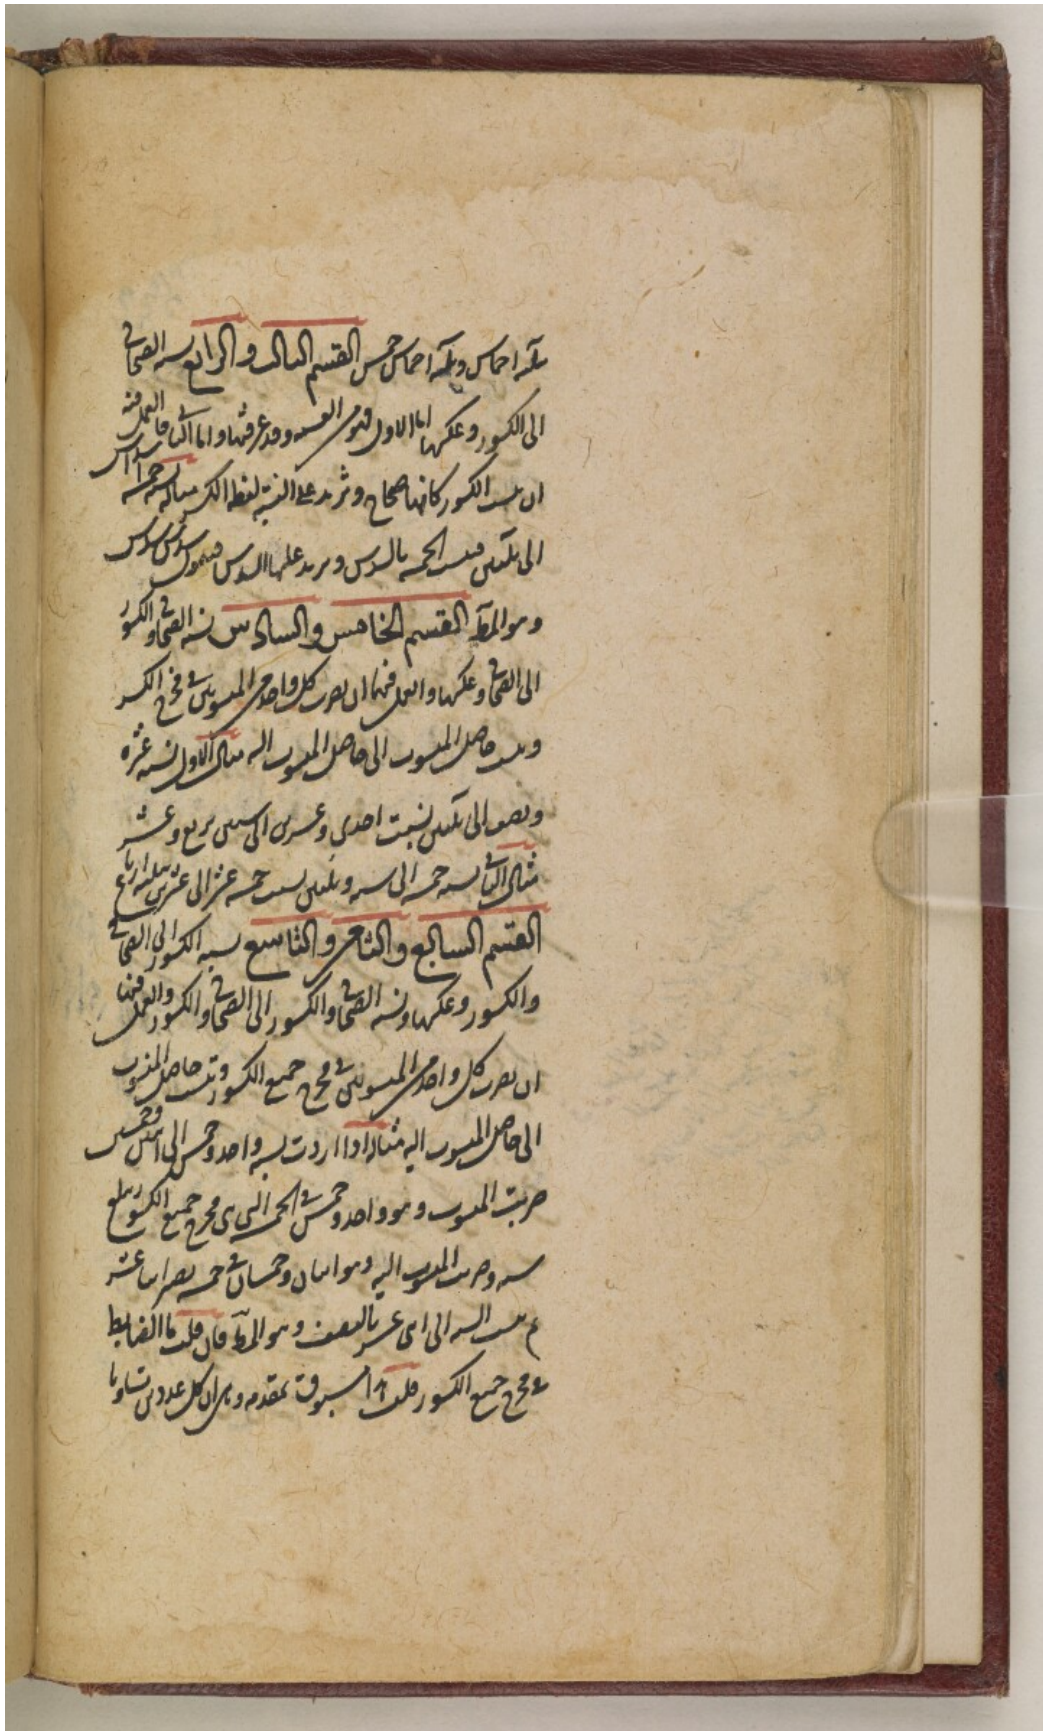 ثلثة اخماس وثلثة اخماس خمس القسم الثالث والرابع نسبة الصحاح
الى الكسور وعكسها اما الاول فهو القسمة وقد عرفتها واما الثاني فالعمل فيه
ان تنسب الكسور كانها صحاح وتزيد على النسبة لفظ الكسر مثاله نسبة خمسة اسداس
الى ثلثين فنسبت الخمسة بالسدس وتزيد عليها السدس فيقول سدس سدس
وهو المط القسم الخامس والسادس نسبة الصحاح والكسور
الى الصحاح وعكسها والعمل فيهما ان تضرب كل واحد من المنسوبين في مخرج الكسر
وتنسب حاصل المنسوب الى حاصل المنسوب اليه مثال الاول نسبة عشرة
ونصف الى ثلثين نسبت احدى وعشرين الى ستين بربع وعشر
مثال الثاني نسبة خمسة الى ستة وثلثين نسبت خمسة عشر الى عشرين بثلثة ارباع
القسم السابع والثامن والتاسع نسبة الكسور الى الصحاح
والكسور وعكسها ونسبة الصحاح والكسور الى الصحاح والكسور والعمل فيها
ان تضرب كل واحد من المنسوبين في مخرج جميع الكسور وتنسب حاصل المنسوب
الى حاصل المنسوب اليه مثاله اذا اردت نسبة واحد وخمس الى اثنين وخمسين
ضربت المنسوب وهو واحد وخمس في الخمسة التي هي مخرج جميع الكسور يبلغ
ستة وضربت المنسوب اليه وهو اثنان وخمسان في خمسة يصير اثنا عشر
ثم نسبت الستة الى اثنى عشر بالنصف وهو المط فان قلت ما الضابط
في مخرج جميع الكسور قلت مسبوق بمقدمة وهي ان كل عددين تساويا